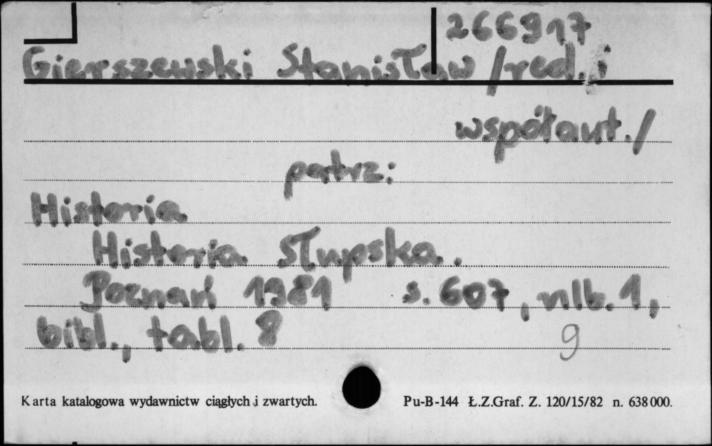 266917
Gierszewski Stanisław /red. i
współaut./
patrz:
Historia
Historia Słupska.
Poznań 1981 s. 607, nlb. 1,
bibl., tabl. 8
9
Karta katalogowa wydawnictw ciągłych i zwartych. Pu-B-144 Ł.Z.Graf. Z. 120/15/82 n. 638 000.